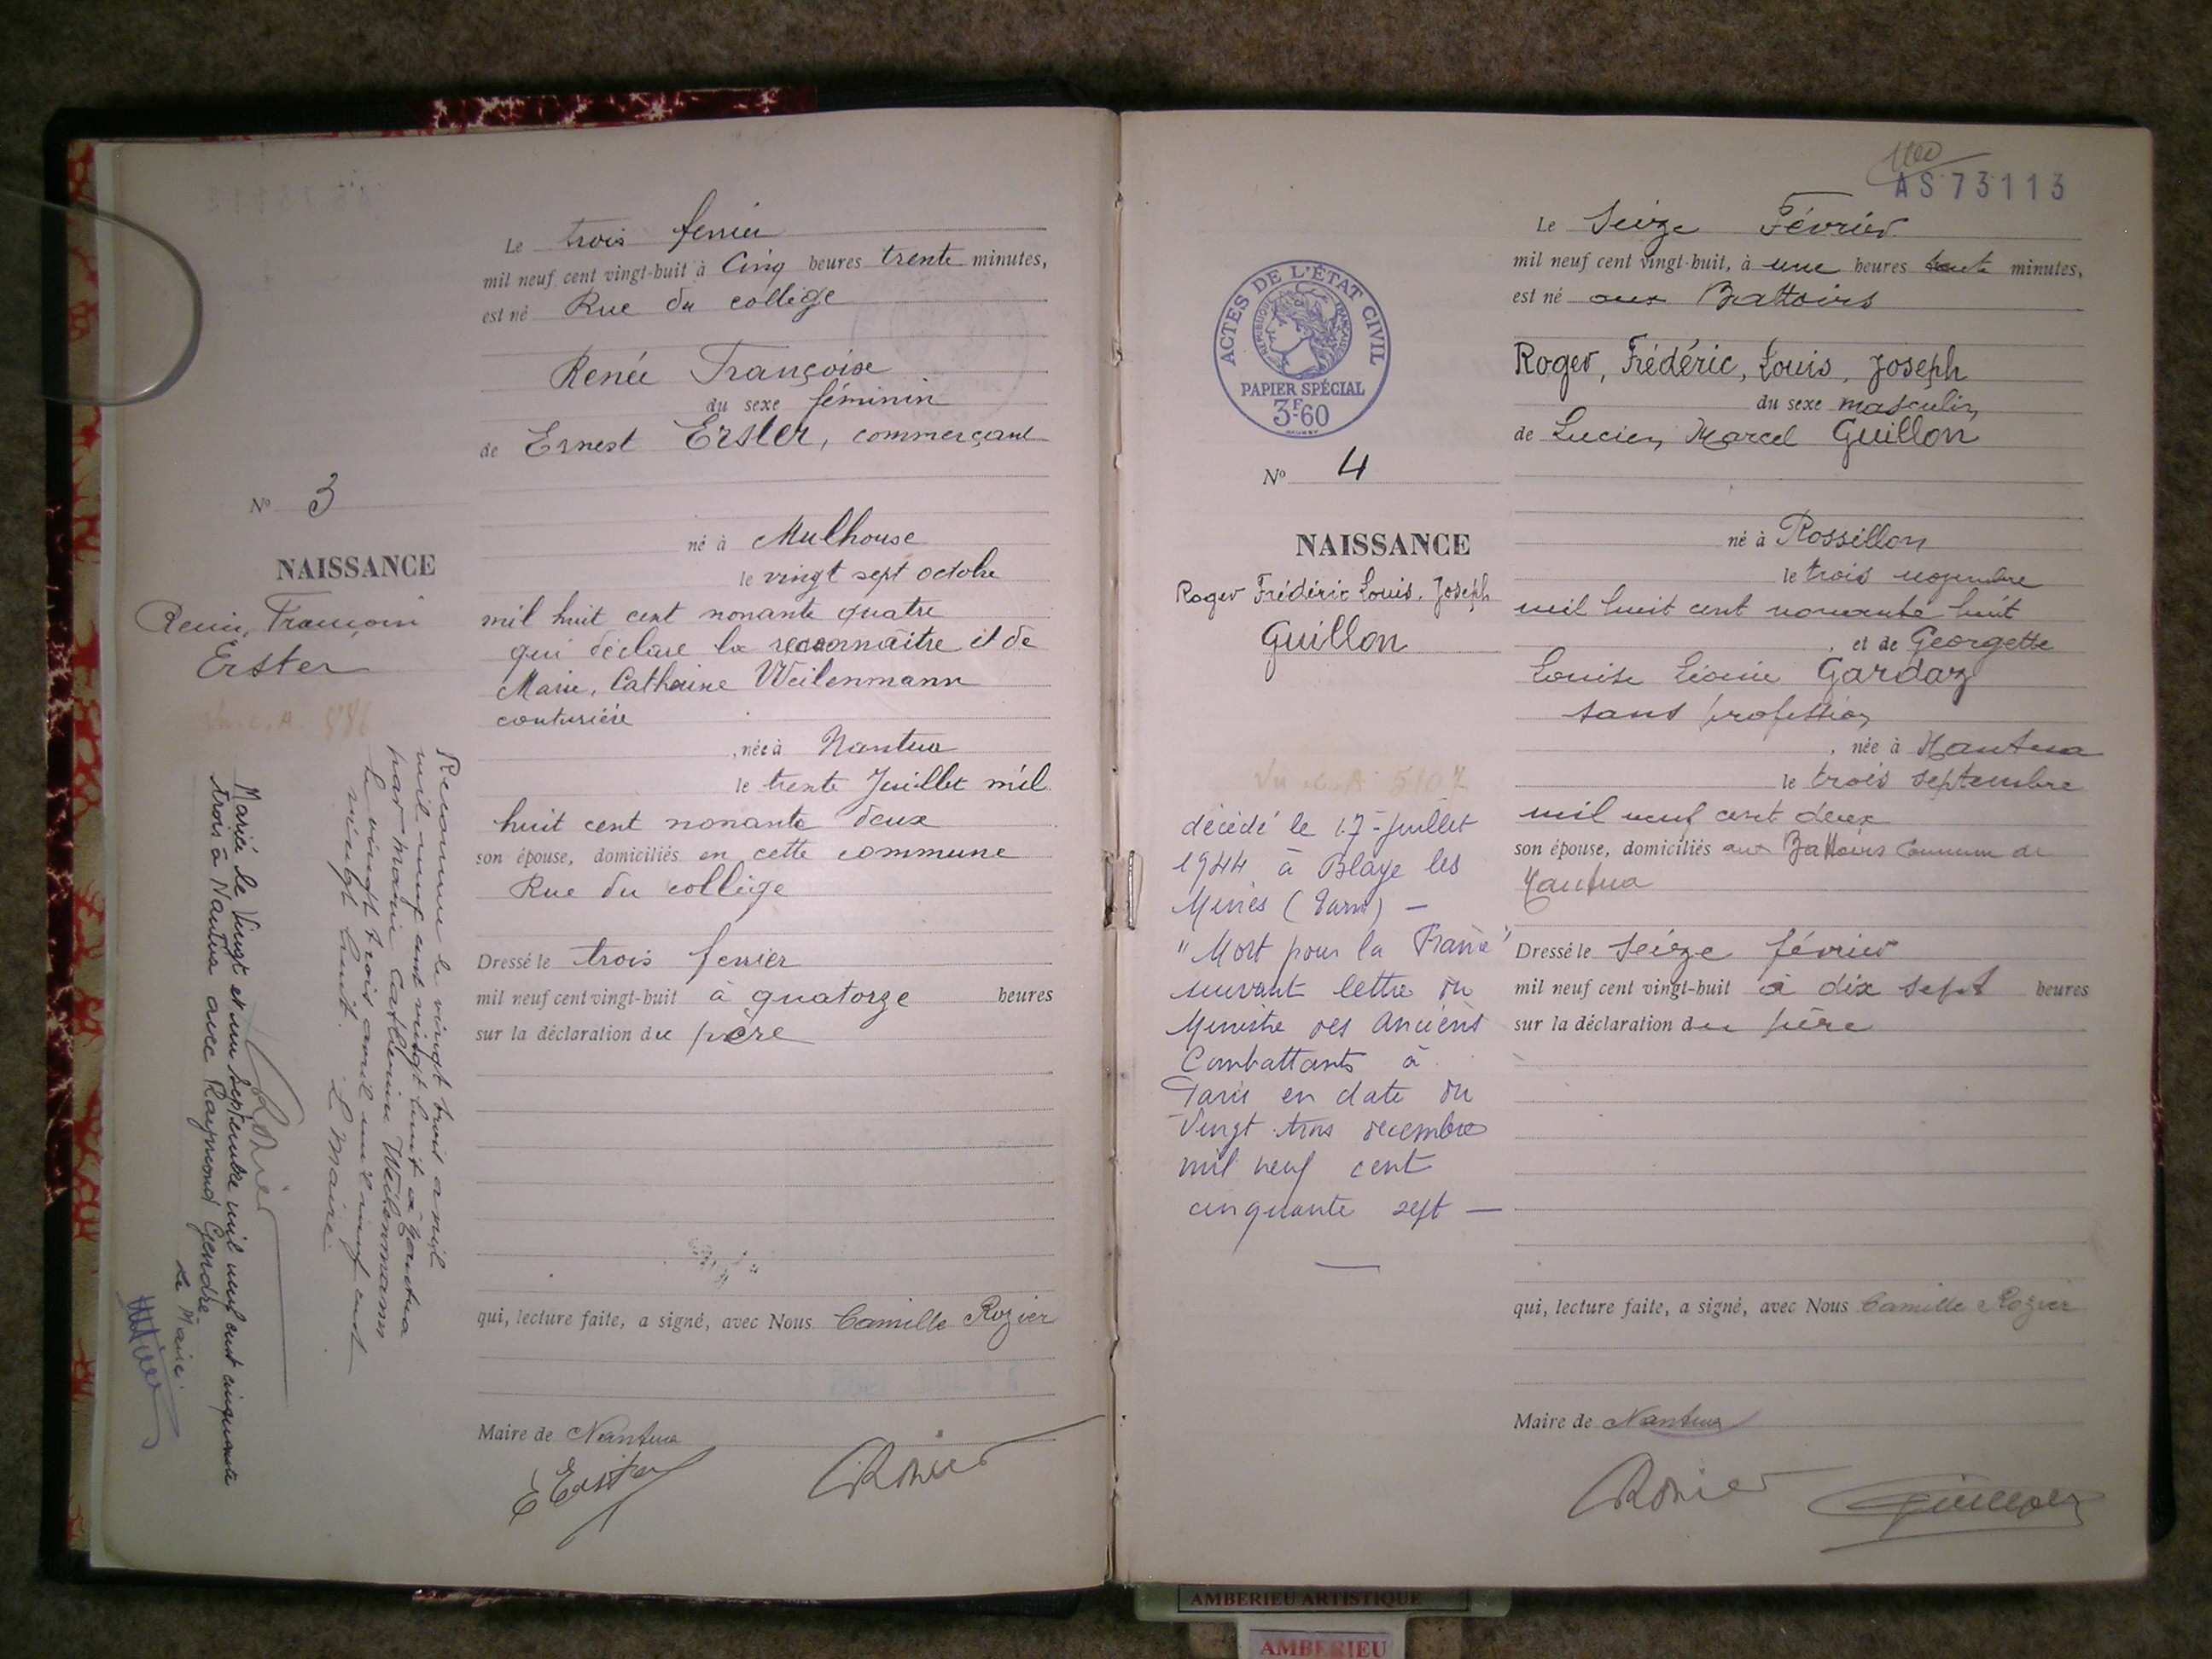 Le trois fevrier
mil neuf cent vingt-huit à Cinq heures trente minutes,
est né Rue du collège
Renée Françoise
du sexe féminin
de Ernest Erster, commerçant
né à Mulhouse
le vingt sept octobre
mil huit cent nonante quatre
qui déclare la reconnaitre et de
Marie, Catherine Weilenmann
couturière
, née à Nantua
le trente Juillet mil
huit cent nonante deux
son épouse, domiciliés en cette commune
Rue du collège
Dressé le trois fevrier
mil neuf cent vingt-huit à quatorze heures
sur la déclaration du père
qui, lecture faite, a signé, avec Nous Camille Rozier
Maire de Nantua
EErster
CRozier
No 3
NAISSANCE
Renée, Françoise
Erster
Vu. C. A.
Reconnue le vingt trois avril
mil neuf cent vingt huit à Nantua
par Marie Catherine Weilenmann
le vingt trois avril mil neuf cent
vingt huit. Le Maire:
CRozier
Mariée le Vingt et un Septembre mil neuf cent cinquante
trois à Nantua avec Raymond Gendre.
Le Maire.
AS 73113
ACTES DE L'ÉTAT CIVIL
RÉPUBLIQUE FRANÇAISE
PAPIER SPÉCIAL
3F60
No 4
NAISSANCE
Roger Frédéric Louis. Joseph
Guillon
Vu. C. A 5107
décédé le 17 - Juillet
1944 à Blaye les
Mines (Tarn) —
"Mort pour la France"
suivant lettre du
Ministre des Anciens
Combattants à
Paris en date du
Vingt trois décembre
mil neuf cent
cinquante sept —
Le Seize Février
mil neuf cent vingt-huit, à une heures trente minutes,
est né aux Battoirs
Roger, Frédéric, Louis, Joseph
du sexe masculin
de Lucien, Marcel Guillon
né à Rossillon
le trois novembre
mil huit cent nonante huit
, et de Georgette
Louise Léonie Gardaz
sans profession
, née à Nantua
le trois septembre
mil neuf cent deux
son épouse, domiciliés aux Battoirs Commune de
Nantua
Dressé le Seize février
mil neuf cent vingt-huit à dix sept heures
sur la déclaration du père
qui, lecture faite, a signé, avec Nous Camille Rozier
Maire de Nantua
CRozier
Guillon
AMBERIEU ARTISTIQUE
AMBERIEU